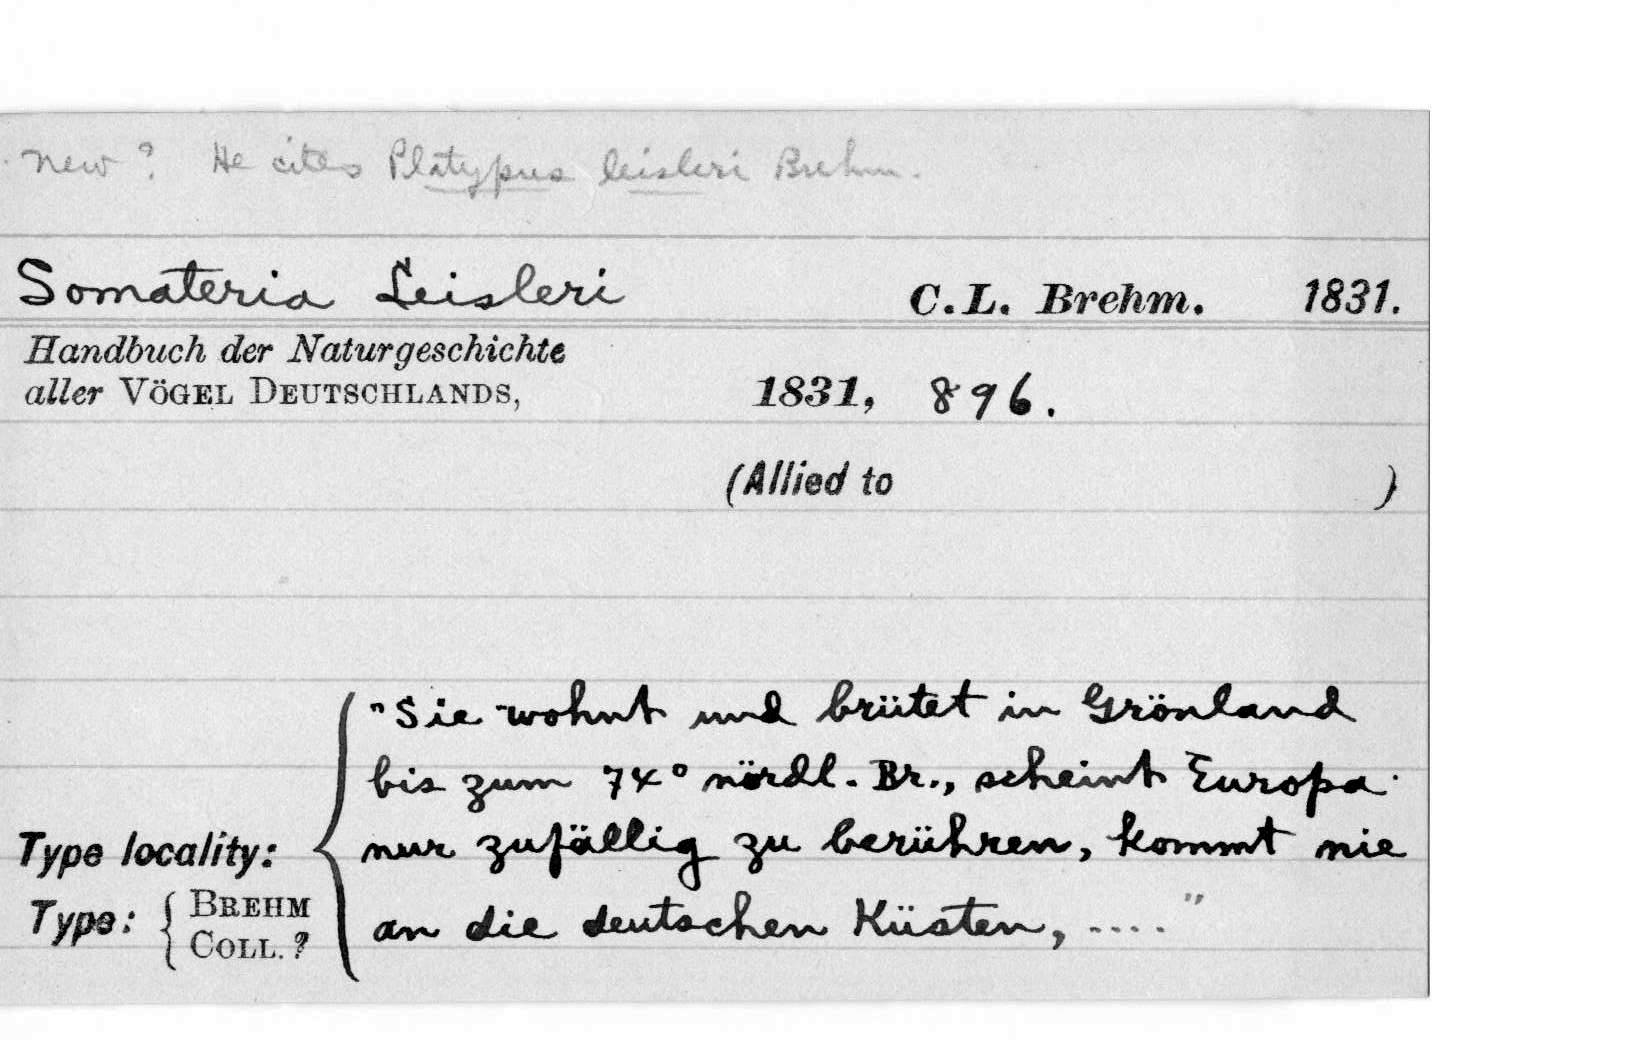 New? He cites Platypus leisleri Brehm.
Somateria Leisleri C.L. Brehm. 1831.
Handbuch der Naturgeschichte
aller VÖGEL DEUTSCHLANDS, 1831, 896.
(Allied to )
"Sie wohnt und brütet in Grönland
bis zum 74° nördl. Br., scheint Europa
Type locality: nur zufällig zu berühren, kommt nie
Type: BREHM COLL. ? an die deutschen Küsten, ...."